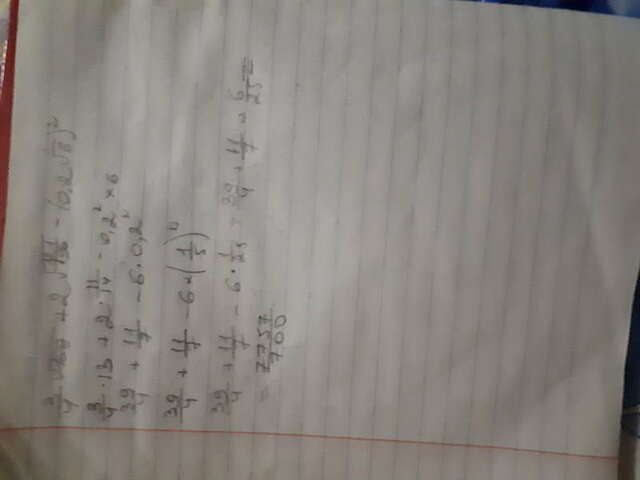 3/4 √169 + 2√(121/196) - (0,2√6)²
3/4 · 13 + 2 · 11/14 - 0,2² × 6
39/4 + 11/7 - 6 · 0,2²
39/4 + 11/7 - 6 × (1/5)²
39/4 + 11/7 - 6 · 1/25 = 39/4 + 11/7 - 6/25 =
= 7757/700